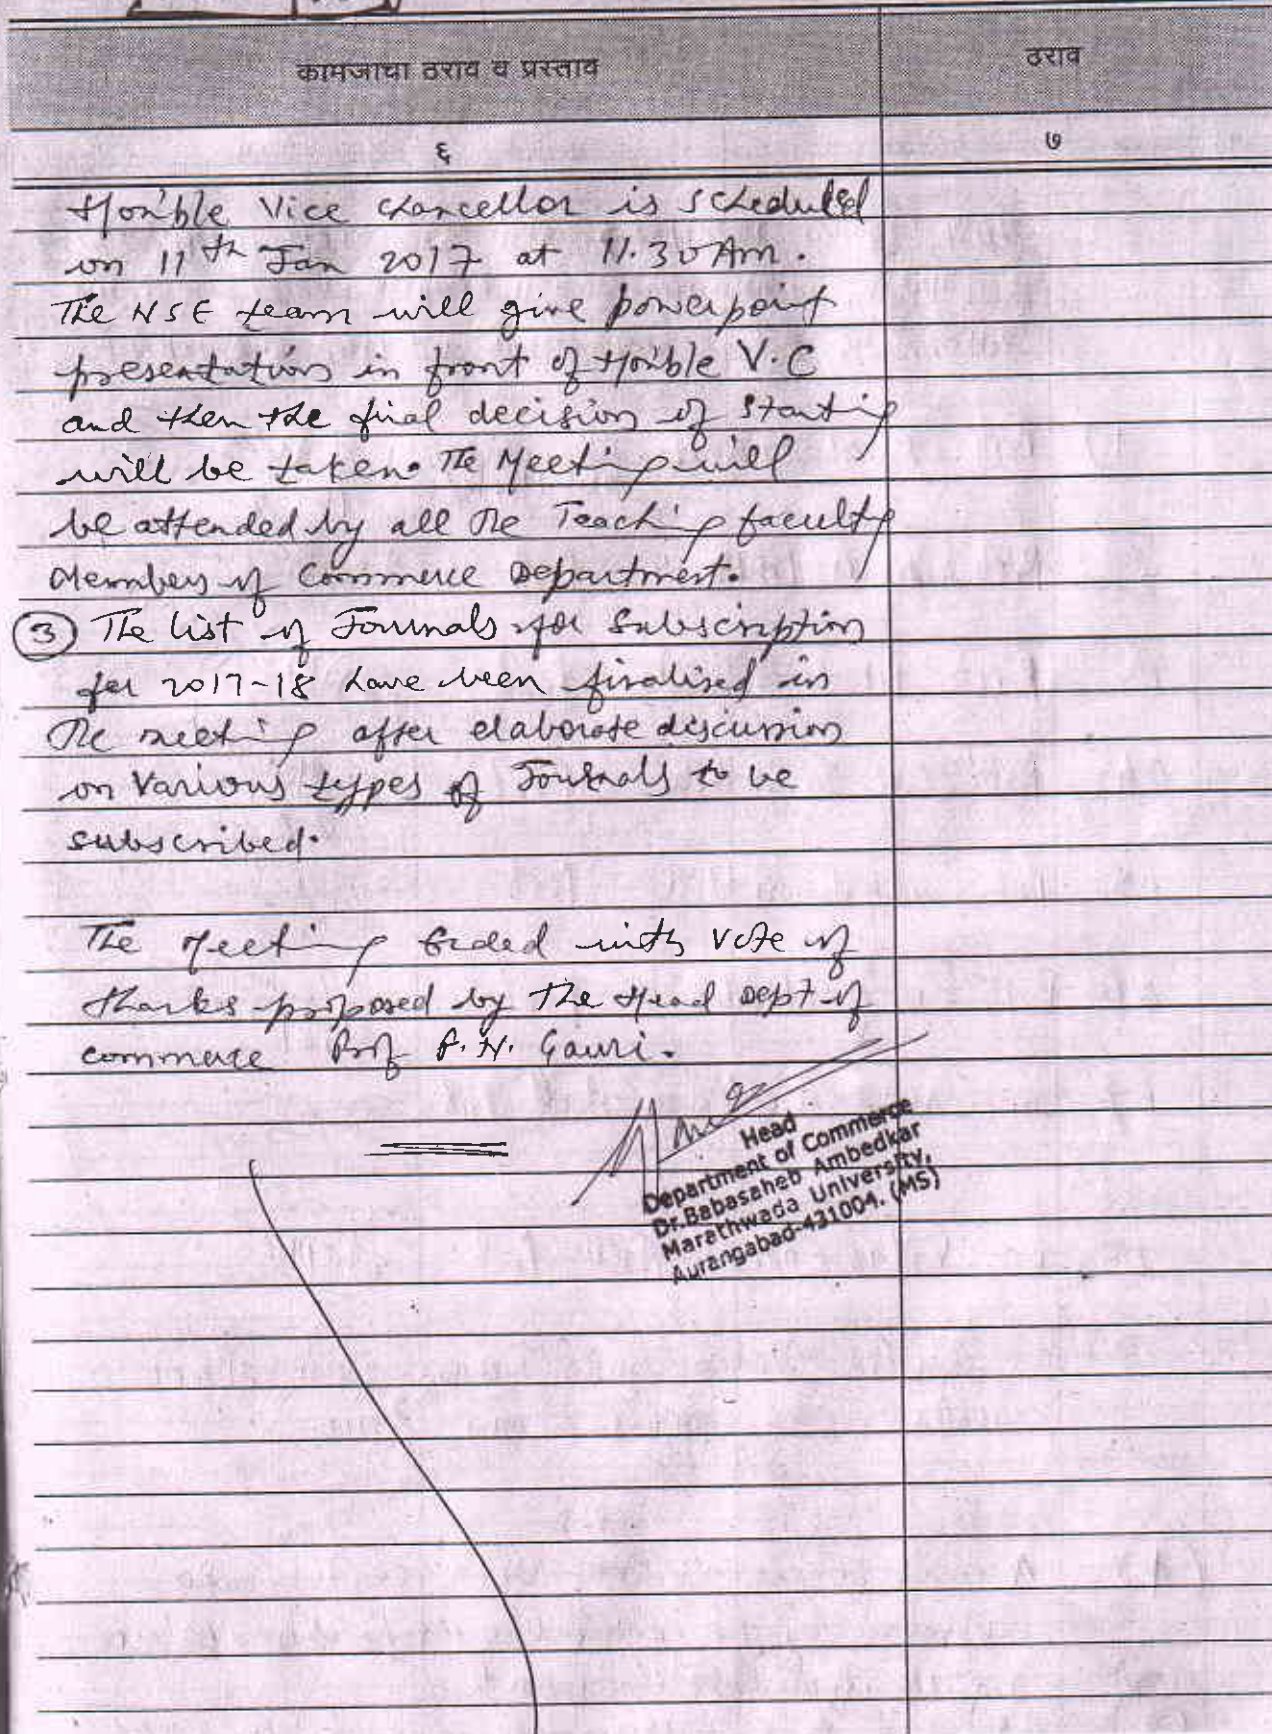 कामजाचा ठराव व प्रस्ताव
ठराव
६
७
Hon'ble Vice chancellor is scheduled
on 11th Jan 2017 at 11.30 Am.
The NSE team will give powerpoint
presentation in front of Hon'ble V.C
and then the final decision of starting
will be taken. The Meeting will
be attended by all the Teaching faculty
Members of Commerce Department.
③ The list of Journals for Subscription
for 2017-18 have been finalised in
the meeting after elaborate discussion
on Various types of Journals to be
subscribed.
The Meeting Ended with vote of
thanks proposed by the Head Dept of
commerce Prof P. N. Gauri.
Head
Department of Commerce
Dr.Babasaheb Ambedkar
Marathwada University,
Aurangabad-431004. (MS)